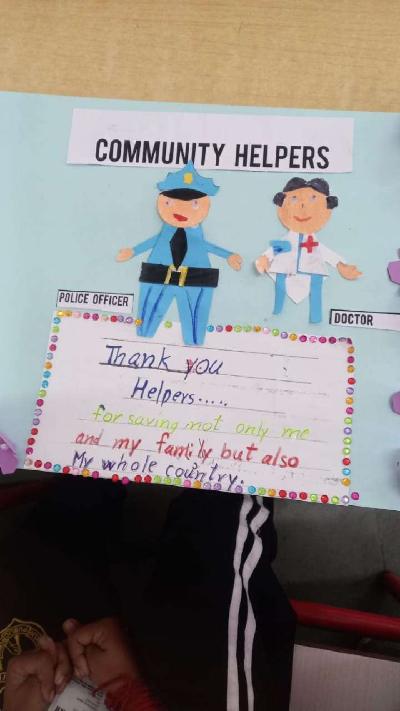 COMMUNITY HELPERS
POLICE OFFICER
DOCTOR
Thank you
Helpers.....
for saving not only me
and my family but also
My whole country.